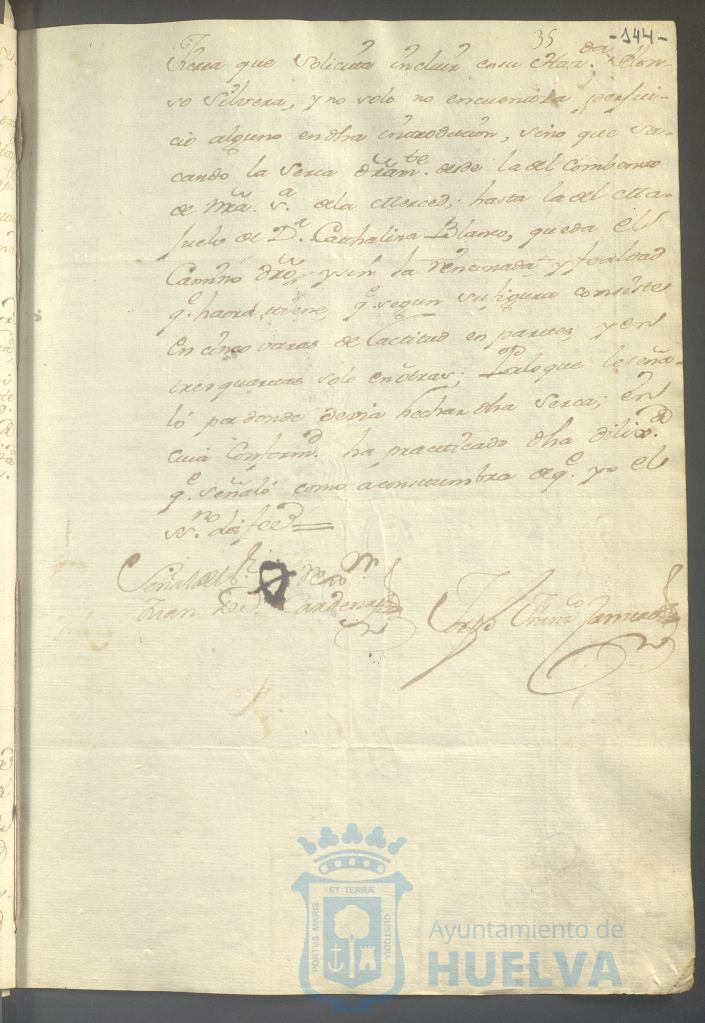 35 -144-
tierra que solicita incluir en su Haz.da Alon-
so Silvera, y no solo no encuentra perjui-
cio alguno en dha introducion, sino que sa-
cando la serca dram.te desde la del Combento
de Nra. S.a de la Merced, hasta la del Ma-
juelo de D.a Cathalina Blanco, queda el
Camino dro, y sin la rinconada y fealdad
q.e haora tiene, q.e segun su figura consiste
en cinco varas de Lactitud en partes, y en
tres quartas solo en otras; Por lo que le seña-
ló por donde devia hechar dha serca; en
cuia Conform.d ha practicado dha dilix.a
q.e señaló como acostumbra de q.e yo el
ss.no doi fee =
Señal del
Juan Cardenas
Fran.co
PORTUS MARIS
ET TERRÆ
CUSTODIA
Ayuntamiento de
HUELVA